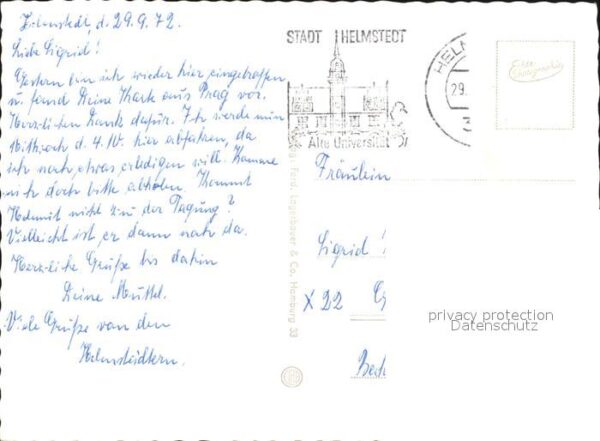 Helmstedt, d. 29.9.72.
Liebe Sigrid!
Gestern bin ich wieder hier eingetroffen
u. fand Deine Karte aus Prag vor.
Herzlichen Dank dafür. Ich werde nun
Mittwoch d. 4.10. hier abfahren, da
ich noch etwas erledigen will. Kannst
mich doch bitte abholen. Kommt
Helmut nicht zu der Tagung?
Vielleicht ist er dann noch da.
Herzliche Grüße bis dahin
Deine Mutti.
Viele Grüße von den
Helmstedtern.
Ferd. Lagerbauer & Co., Hamburg 33
STADT HELMSTEDT
Alte Universität
HELM
29.
Echte Photographie
Fräulein
Sigrid
X 22
Bech
privacy protection
Datenschutz